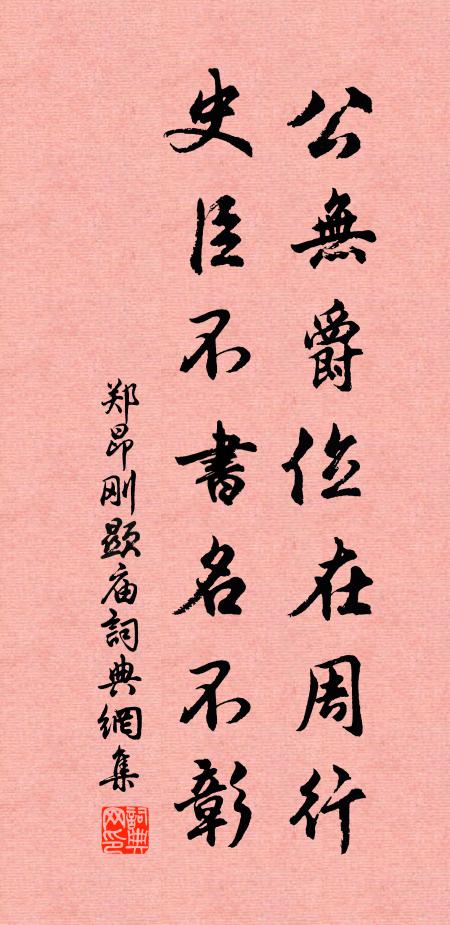 公無爵位在周行
史臣不書名不彰
郑昂刚显庙詞典網集
詞典网印